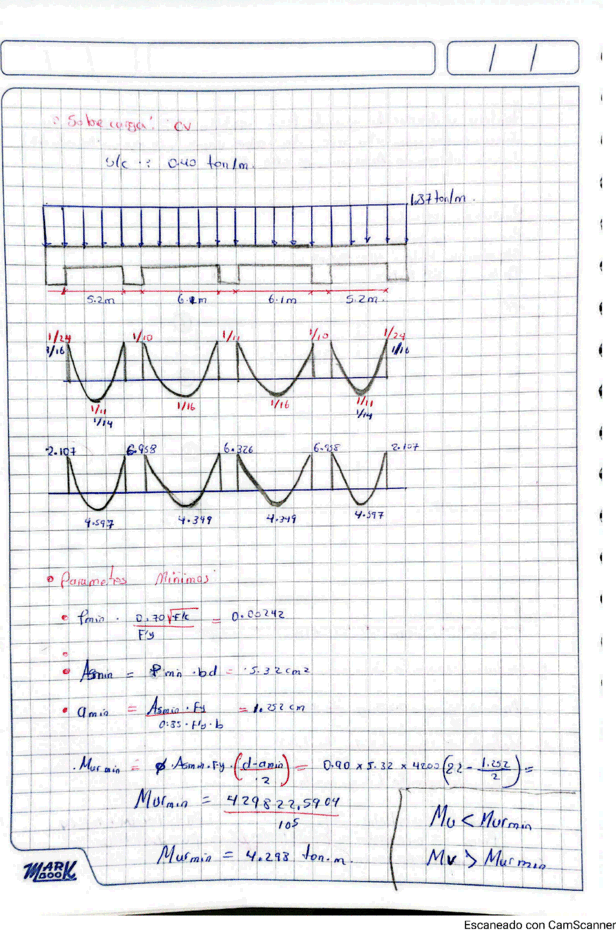 Sobrecarga: CV
s/c : 0.40 ton/m.
1.37 ton/m.
5.2m 6.1m 6.1m 5.2m.
1/24 1/10 1/11 1/10 1/24
1/16 1/16
1/11 1/16 1/16 1/11
1/14 1/14
2.107 6.958 6.326 6.958 2.107
4.597 4.349 4.349 4.597
• Parametros Minimos
• ρmin . 0.70√F'c / F'y = 0.00242
• Asmin = ρmin . bd = 5.32 cm2
• amin = Asmin . Fy / 0.85 . F'y . b = 1.252 cm
. Murmin = ø . Asmin . Fy . (d - amin / 2) = 0.90 x 5.32 x 4200 (22 - 1.252 / 2) =
Murmin = 429822,5904 / 10⁵
Murmin = 4.298 ton.m.
Mu < Murmin
Mu > Murmin
MARK BOOK
Escaneado con CamScanner